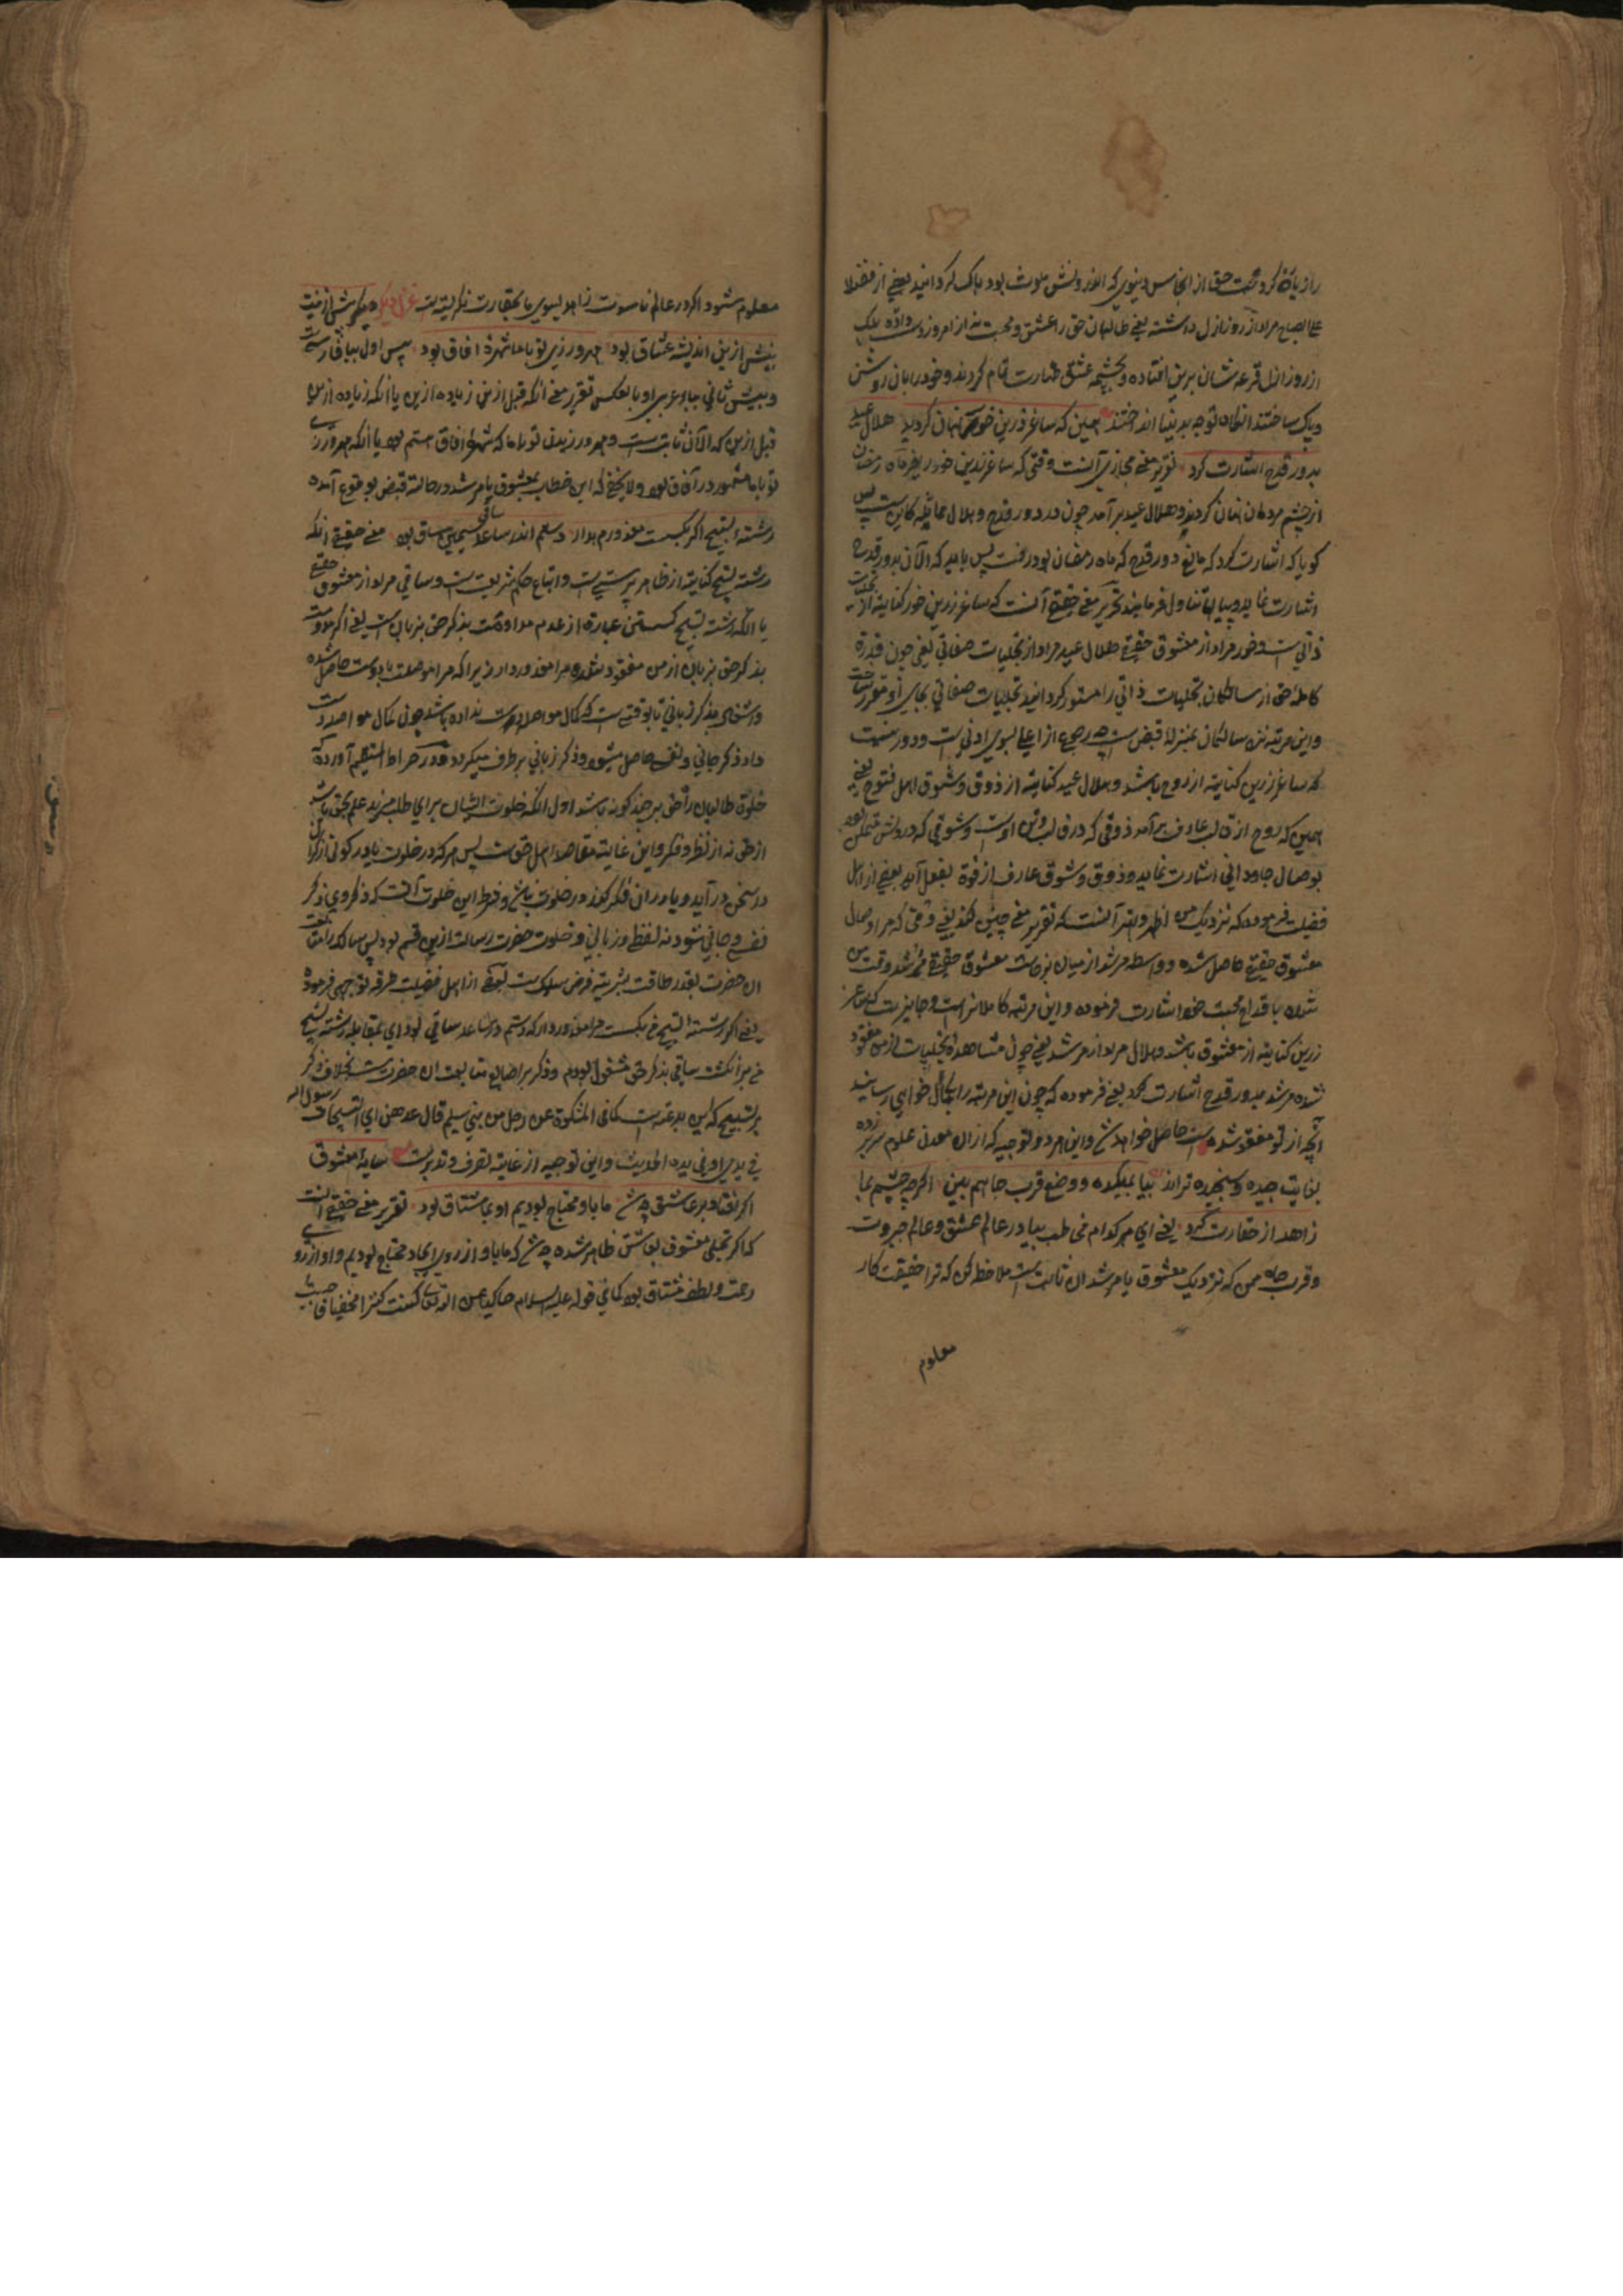 را زیاده کرد و محبت حق از انجاس دنیوی که اندرونش ملوث بود پاک گردانید یعنی از فضلا
علی الصباح مراد از روز ازل داشته یعنی طالبان حق را عشق و محبت نه از امروز دست داده بلکه
از روز ازل قرعه شان برین افتاده و بچشمه عشق طهارت تمام کردند و خود را بان روشن
و پاک ساختند انگاه توجه بدنیا انداختند همین که ساغر زرین خور نهان گردید هلال عید
بدور قدح اشارت کرد تقریر معنی مجازی آنست وقتی که ساغر زرین خور یعنی ماه رمضان
از چشم مردمان نهان گردید و هلال عید برآمد چون در دور قدح و هلال مماثله کاین است پس
گویا که اشارت کرد که مانع دور قدح که ماه رمضان بود رفت پس باید که الآن بدور قدح
اشارت نماید و پیاله تناول فرمایند تحریر معنی حقیقی آنست که ساغر زرین خور کنایه از تجلیات
ذاتی است و خور مراد از معشوق حقیقی هلال عید مراد از تجلیات صفاتی یعنی چون قدرة
کامله حق از سالکان تجلیات ذاتی را مستور گردانید تجلیات صفاتی بجای او مقرر ساخت
و این مرتبه نزد سالکان بمنزله قبض است چه رجوع از اعلی بسوی ادنی است و دور نیست
که ساغر زرین کنایه از روح باشد و هلال عید کنایه از ذوق و شوق اهل فتوح یعنی
همین که روح از قالب عارف برآمد ذوقی که در قالب اوست و شوقی که درونش متمکن بود
بوصال جاودانی اشارت نماید و ذوق و شوق عارف از قوة بفعل آید یعنی از اهل
فضیلت فرموده که نزدیک من اظهر و ابهر آنست که تقریر معنی چنین کنند یعنی وقتی که مرا وصال
معشوق حقیقی حاصل شده و واسطه مرشد از میان برخاست معشوق حقیقی مرشد وقت من
شده باقداح محبت خود اشارت فرموده و این مرتبه کاملانراست و جایز است که ساغر
زرین کنایه از معشوق باشد و هلال مراد از مرشد یعنی چون مشاهده تجلیات از من مفقود
شده مرشد بدور قدح اشارت کرد یعنی فرموده که چون این مرتبه را بکمال خواهی رسانید
آنچه از تو مفقود شده است حاصل خواهد شد و این هر دو توجیه که از آن معدن علوم سرزده
بغایت جیده و سنجیده تراند بیا بمیکده و وضع قرب جاهم بین اگرچه چشم بما
زاهد از حقارت کرد یعنی ای هر کدام مخاطب بیا در عالم عشق و عالم جبروت
و قرب جاه من که نزدیک معشوق یا مرشد آن ثابت است ملاحظه کن که ترا حقیقت کار
معلوم
معلوم شود اگر در عالم ناسوت زاهد بسوی ما بحقارت نگریسته است غزل دیگر پیش ازینت
بیش ازین اندیشه عشاق بود مهرورزی تو با ما شهره آفاق بود پیش اول ببا فارسی است
و بیش ثانی بباء عربی او بالعکس تقریر معنی آنکه قبل ازین زیاده ازین یا آنکه زیاده ازین
قبل ازین که الآن ثابت است و مهر ورزیدن تو با ما که شهره آفاق استم بود یا آنکه مهرورزی
تو با ما مشهور در آفاق بود ولا یخفی که این خطاب بمعشوق یا مرشد در حالة قبض بوقوع آمده
رشته تسبیح اگر بگسست معذورم بدار دستم اندر ساعد ساقی سیمین ساق بود معنی حقیقی آنکه
رشته تسبیح کنایه از ظاهر پرستی است و اتباع حکم شریعت است و ساقی مراد از معشوق حقیقی
یا آنکه رشته تسبیح گسستن عبارة از عدم مداومت بذکر حق بزبان است یعنی اگر مداومت
بذکر حق بزبان از من مفقود شده مرا معذور دار زیرا که مرا مواصلت با دوست حاصل شده
و اشتغال بذکر زبانی تا بوقتی است که کمال مواصلت دست نداده باشد چون کمال مواصلت دست
داد ذکر جانی و نفسی حاصل میشود و ذکر زبانی برطرف میگردد و در صراط المستقیم آورده که
خلوة طالبان راه حق بر چند گونه باشد اول آنکه خلوت ایشان برای طلب مزید علم بحق باشد
از حق نه از نظر و فکر و این غایة مقاصد اهل حق است پس هرکه در خلوت با دیگر کونی از اکوان
در سخن درآید و یا در ان فکر کند در خلوت نباشد و شرط این خلوت آنست که ذکر وی ذکر
نفسی و جانی شود نه لفظ و زبانی و خلوت حضرت رسالت ازین قسم بود پس سالک را متابعت
ان حضرت بقدر طاقت بشریته فرض سلوک است بعضی از اهل فضیلت طرفه توجیهی فرموده
یعنی اگر رشته تسبیح بگسست مرا معذور دار که دستم در ساعد ساقی بود ای بمقابله رشته تسبیح
من بر انگشت ساقی بذکر حق مشغول بودم و ذکر بر اصابع متابعت ان حضرت است بخلاف ذکر
بر تسبیح که این بدعت است کما فی المشکوة عن رجل من بنی سلیم قال عدهن ای التسبیحات رسول الله
فی یدی او فی یده الحدیث و این توجیه از غایة تصرف و تدبر است سایه معشوق
اگر افتاد بر عاشق چه شد ما باو محتاج بودیم او بما مشتاق بود تقریر معنی حقیقی آنست
که اگر تجلی معشوق بعاشق ظاهر شده چه شد که ما باو از روی ایجاد محتاج بودیم و او از روی
رحمت و لطف مشتاق بود کما فی قوله علیه السلام حاکیا عن الله تعالی کنت کنزا مخفیا فاحببت